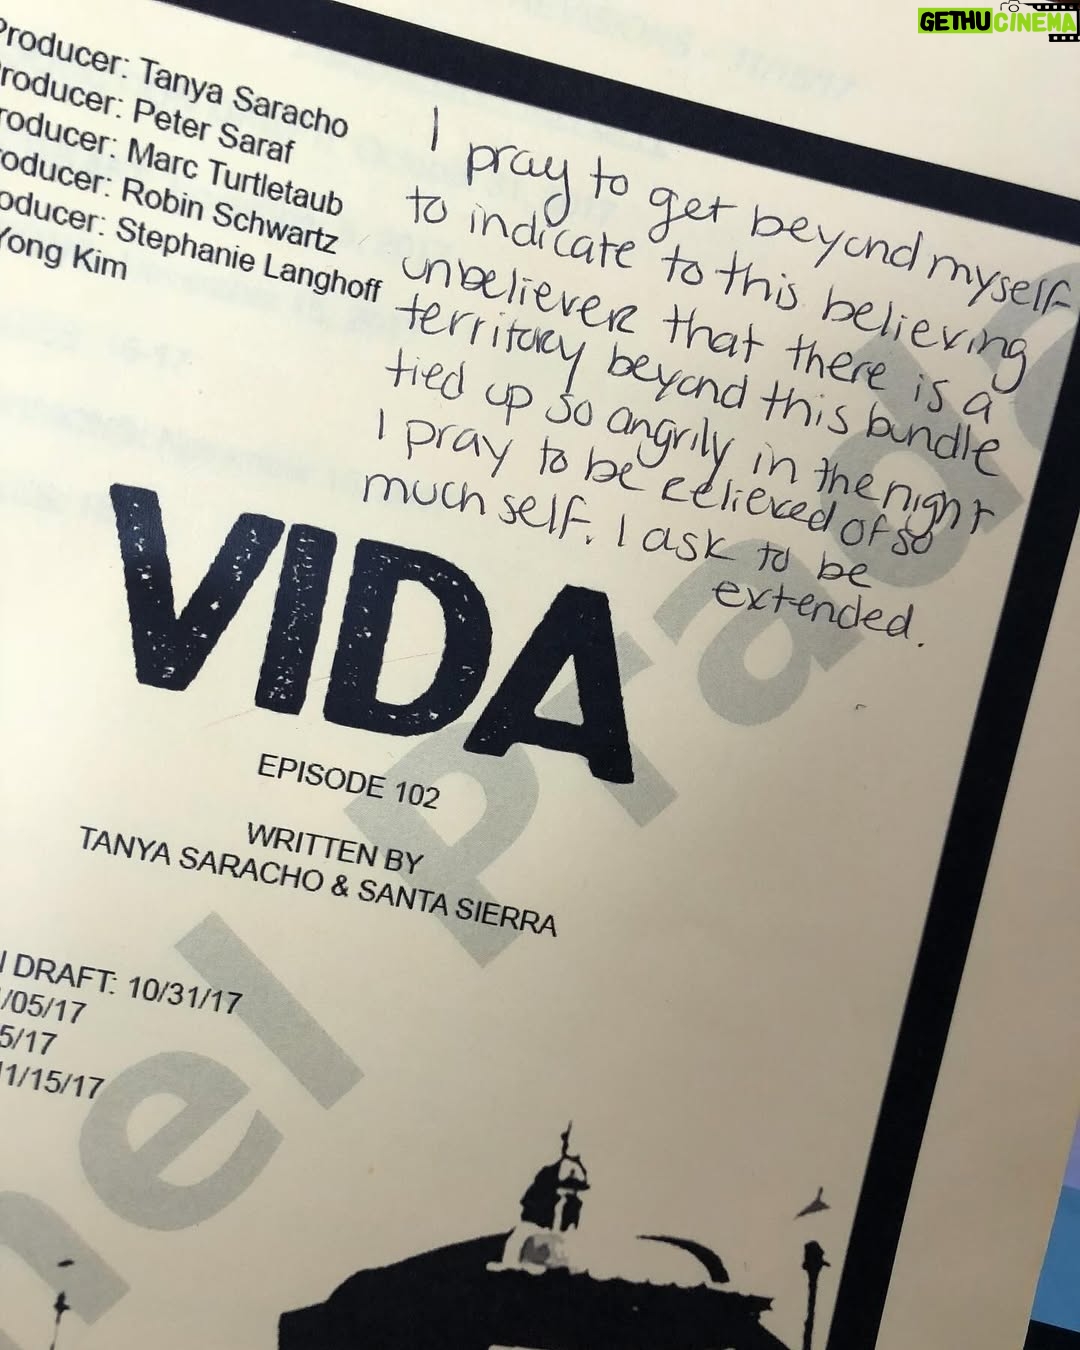 GETHUCINEMA
Producer: Tanya Saracho
roducer: Peter Saraf
roducer: Marc Turtletaub
oducer: Robin Schwartz
oducer: Stephanie Langhoff
Yong Kim
I pray to get beyond myself
to indicate to this believing
unbeliever that there is a
territory beyond this bundle
tied up so angrily in the night
I pray to be relieved of so
much self. I ask to be
extended.
VIDA
EPISODE 102
WRITTEN BY
TANYA SARACHO & SANTA SIERRA
DRAFT: 10/31/17
/05/17
5/17
11/15/17
nel Prado